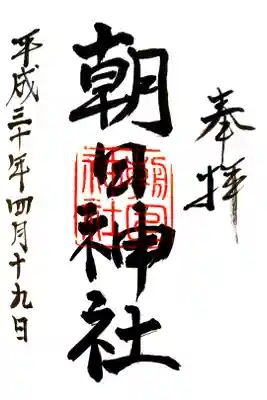 奉拝
朝日神社
平成三十年四月十九日